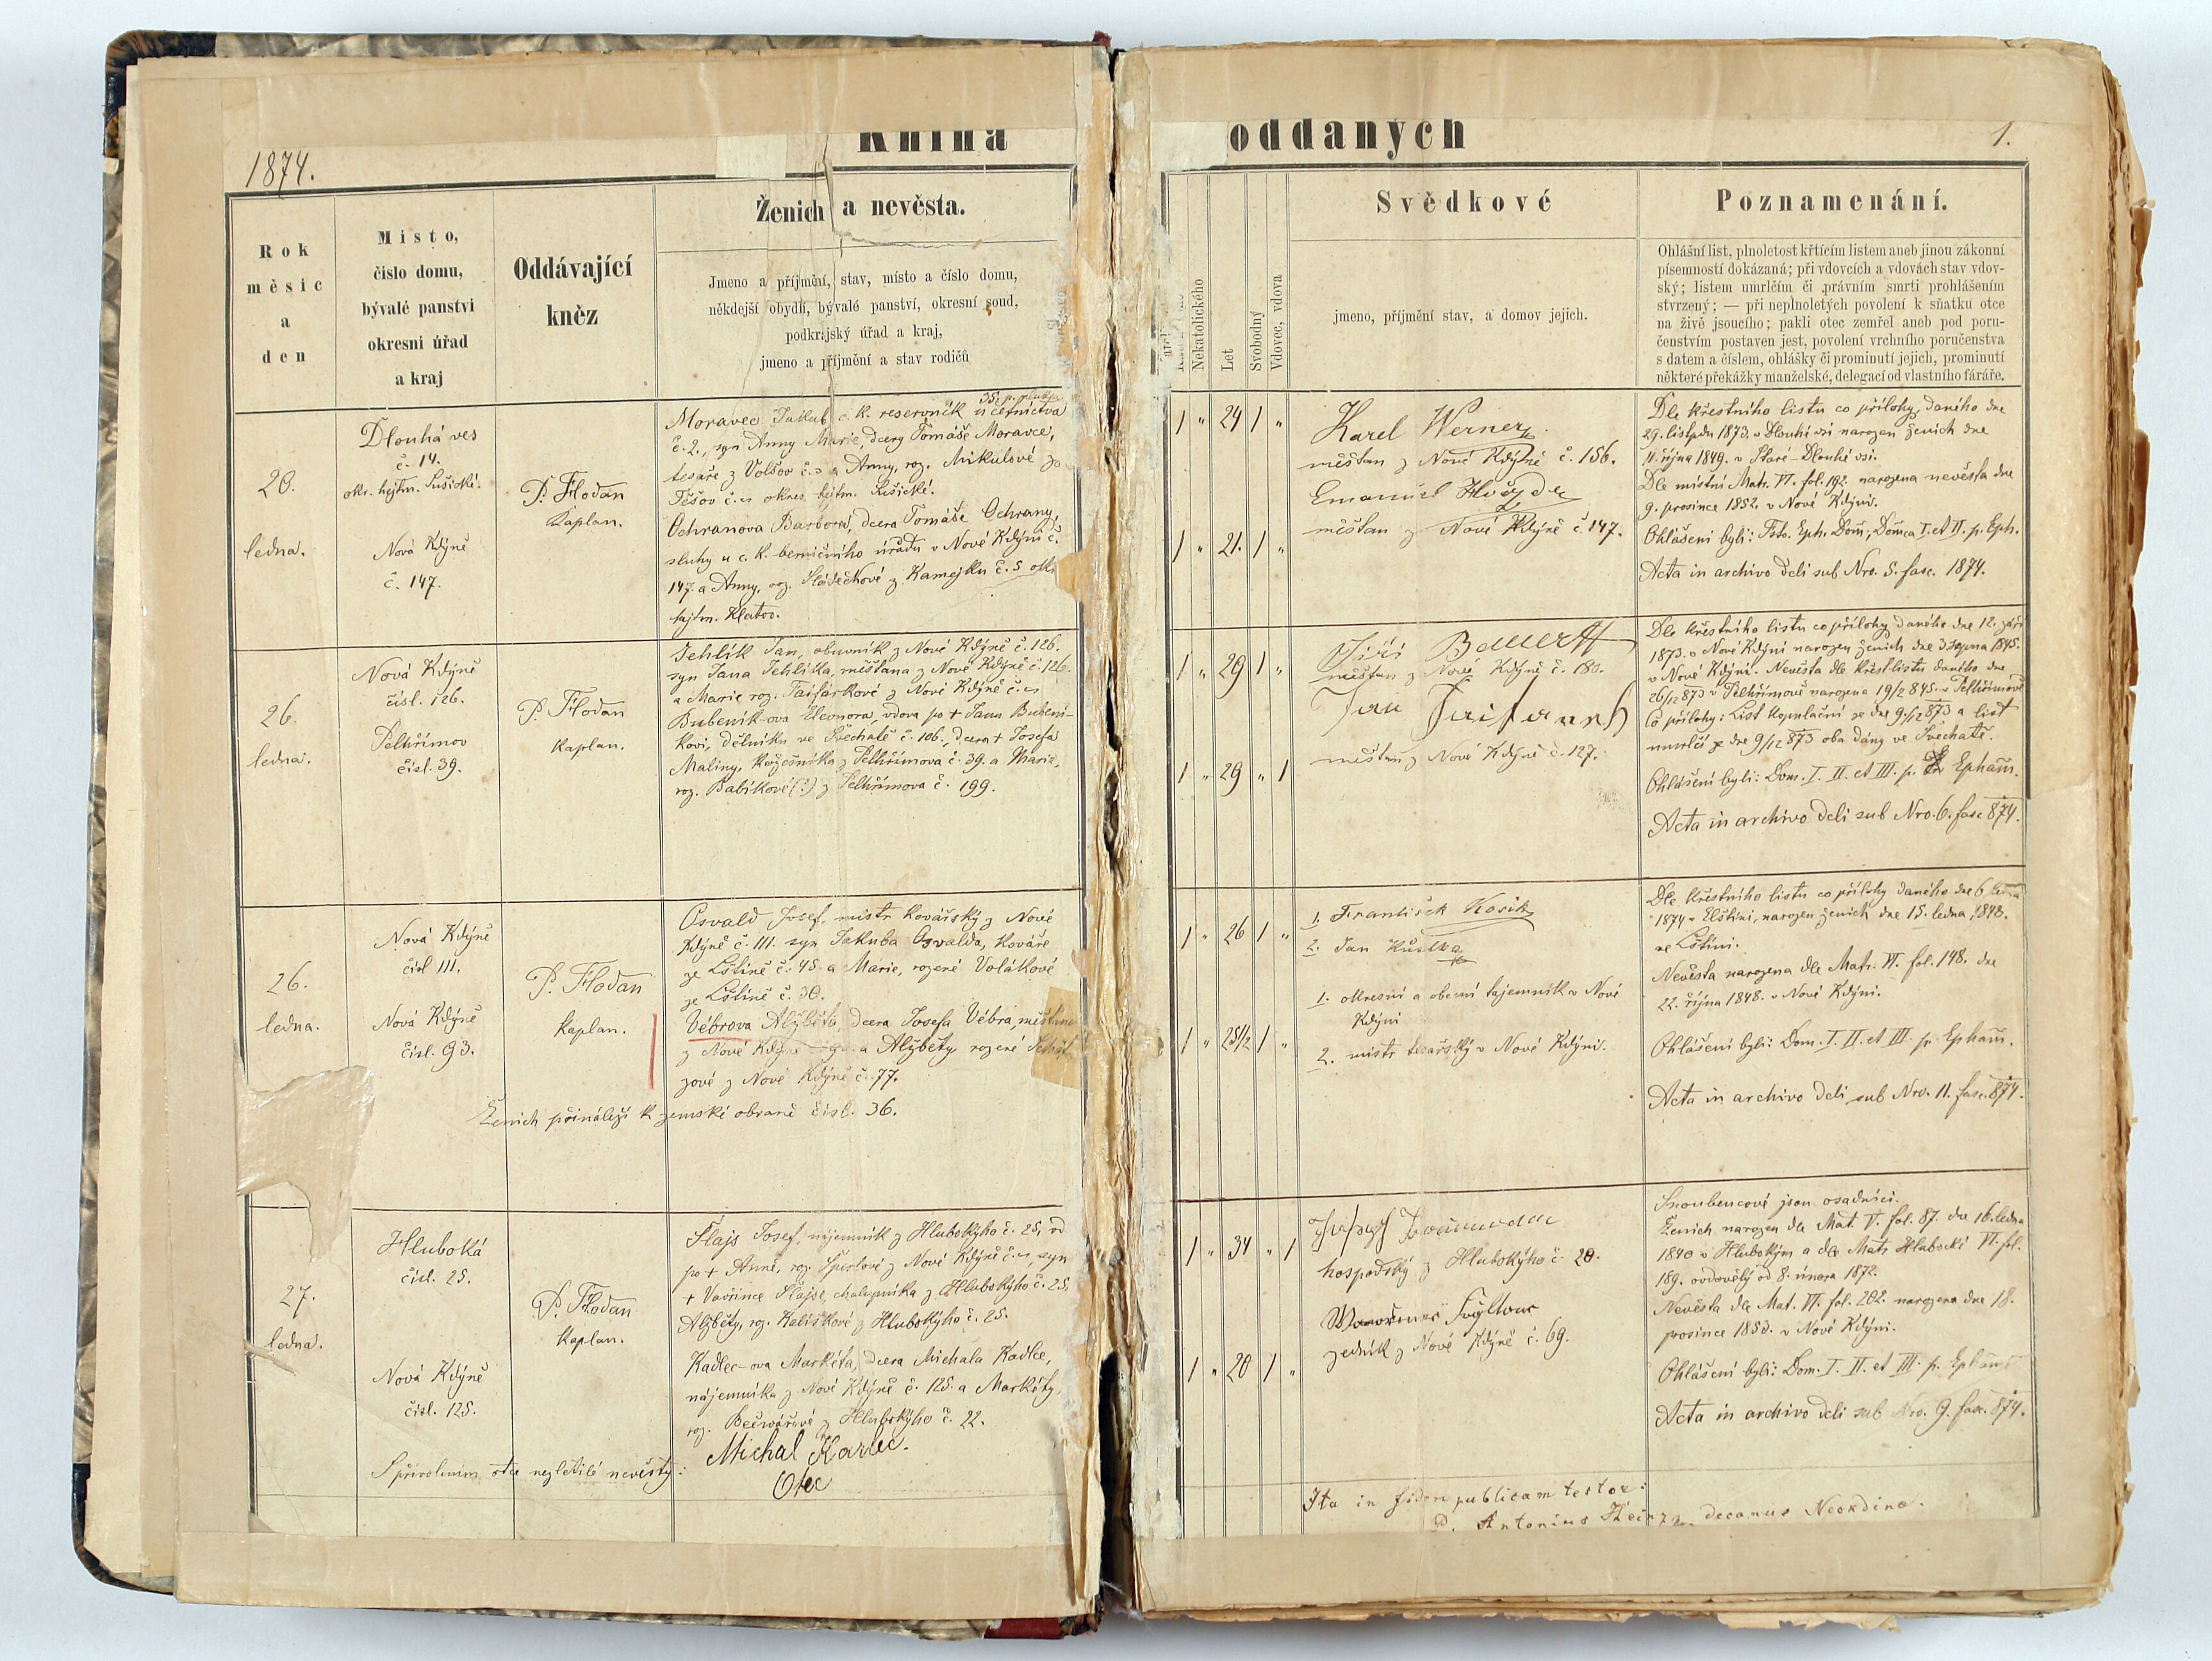 1874.
Kniha oddaných
1.
Rok
měsíc
a
den
Místo,
číslo domu,
bývalé panství
okresní úřad
a kraj
Oddávající
kněz
Ženich a nevěsta.
Jmeno a příjmění, stav, místo a číslo domu,
někdejší obydlí, bývalé panství, okresní soud,
podkrajský úřad a kraj,
jmeno a příjmění a stav rodičů
Nekatolického
Let
Svobodný
Vdovec, vdova
Svědkové
jmeno, příjmění stav, a domov jejich.
Poznamenání.
Ohlášní list, plnoletost křtícím listem aneb jinou zákonní
písemností dokázaná; při vdovcích a vdovách stav vdov-
ský; listem umrlčím či právním smrti prohlášením
stvrzený; — při neplnoletých povolení k sňatku otce
na živě jsoucího; pakli otec zemřel aneb pod poru-
čenstvím postaven jest, povolení vrchního poručenstva
s datem a číslem, ohlášky či prominutí jejich, prominutí
některé překážky manželské, delegací od vlastního fáráře.
20.
ledna.
Dlouhá ves
č. 14.
okr. hejtm. Sušické.
Nová Kdýně
č. 147.
P. Flodan
Kaplan.
35. p. pluku
Moravec Jakub c. k. reservník u četnictva
č. 2., syn Anny Marie, dcery Tomáše Moravce,
tesaře z Volšov č. a Anny, roz. Mikulové z
Těšov č. okres. hejtm. Sušické.
Ochranova Barbora, dcera Tomáše Ochrany,
sluhy u c. k. berničního úřadu v Nové Kdýni č.
147. a Anny, roz. Sládečkové z Kamejku č. 5 okr.
hejtm. Klatov.
1 " 24 1 "
1 " 21. 1 "
Karel Werner
měšťan z Nové Kdýně č. 156.
Emanuel Hvězda
měšťan z Nové Kdýně č. 147.
Dle křestního listu co přílohy, daného dne
29. listpdu 1873. v Dlouhé vsi narozen ženich dne
11. října 1849. v Staré-Dlouhé vsi.
Dle místní Matr. VI. fol. 192. narozena nevěsta dne
9. prosince 1852. v Nové Kdýni.
Ohlášeni byli: Fsto. Eph. Dom., Domca I. et II. p. Eph.
Acta in archivo deli sub Nro. 5. fasc. 1874.
26.
ledna.
Nová Kdýně
čísl. 126.
Pelhřimov
čísl. 39.
P. Flodan
Kaplan.
Jehlík Jan, obuvník z Nové Kdýně č. 126.
syn Jana Jehlíka, měšťana z Nové Kdýně č. 126
a Marie roz. Taifárkové z Nové Kdýně č.
Bubeník-ova Eleonora, vdova po + Janu Bubení-
kovi, dělníku ve Švechatě č. 106., dcera + Josefa
Maliny, kožešníka z Pelhřimova č. 39. a Marie,
roz. Babíkové (?) z Pelhřimova č. 199.
1 " 29 1 "
1 " 29 " 1
Jiří Bauer
měšťan z Nové Kdýně č. 180.
Jan
měšťan z Nové Kdýně č. 127.
Dle křestního listu co přílohy daného dne 12. září
1873. v Nové Kdýni narozen ženich dne 3 srpna 1845.
v Nové Kdýni. Nevěsta dle křest listu daného dne
26/12 873 v Pelhřimově narozena 19/2 845. v Pelhřimově
Co přílohy: List kopulační ze dne 9/12 873 a list
umrlčí ze dne 9/12 873 oba dány ve Švechatě.
Ohlášeni byli: Dom. I. II. et III. p. Epham.
Acta in archivo deli sub Nro. 6. fasc 874.
26.
ledna.
Nová Kdýně
čísl 111.
Nová Kdýně
čísl. 93.
P. Flodan
kaplan.
Osvald Josef, mistr kovářský z Nové
Kdýně č. 111. syn Jakuba Osvalda, kováře
ze Lštíně č. 45 a Marie, rozené Volákové
ze Lštíně č. 30.
Vébrova Alžběta, dcera Josefa Vébra, měšťana
z Nové Kdýně 93. a Alžběty rozené
zové z Nové Kdýně č. 77.
Ženich přináleží k zemské obraně čísl. 36.
1 " 26 1 "
1 " 25 1/2 1 "
1. František Kosík
2. Jan
1. okresní a obecní tajemník v Nové
Kdýni
2. mistr tesařský v Nové Kdýni.
Dle křestního listu co přílohy daného dne 6 ledna
1874 v Elštíni, narozen ženich dne 15. ledna 1848.
ve Lštíni.
Nevěsta narozena dle Matr. VI. fol. 148. dne
22. října 1848. v Nové Kdýni.
Ohlášeni byli: Dom. I. II. et III. p. Epham.
Acta in archivo deli sub Nro. 11. fasc. 874.
27.
ledna.
Hluboká
čísl. 25.
Nová Kdýně
čísl. 125.
P. Flodan
Kaplan.
Flajs Josef, nájemník z Hlubokýho č. 25, vd
po + Anně, roz. z Nové Kdýně č., syn
+ Vavřince Flajse, chalupníka z Hlubokýho č. 25,
Alžběty, roz. Kališkové z Hlubokýho č. 25.
Kadlec-ova Markéta, dcera Michala Kadlce,
nájemníka z Nové Kdýně č. 125. a Markéty,
roz. Bečvářové z Hlubokýho č. 22.
S přivolením otce nezletilé nevěsty:
Michal Karlec.
Otec
1 " 34 " 1
1 " 20 1 "
Josef
hospodský z Hlubokýho č. 20.
zedník z Nové Kdýně č. 69.
Snoubencové jsou osadníci.
Ženich narozen dle Mat. V. fol. 87. dne 16. ledna
1840 v Hlubokým a dle Matr Hluboké VI. fol.
189. ovdověly od 8. února 1872.
Nevěsta dle Mat. VI. fol. 202. narozena dne 18.
prosince 1853. v Nové Kdýni.
Ohlášeni byli: Dom. I. II. et III. p. Epham
Acta in archivo deli sub Nro. 9. fasc. 874.
Ita in fidem publicam testor:
P. Antonius decanus Neokdino.